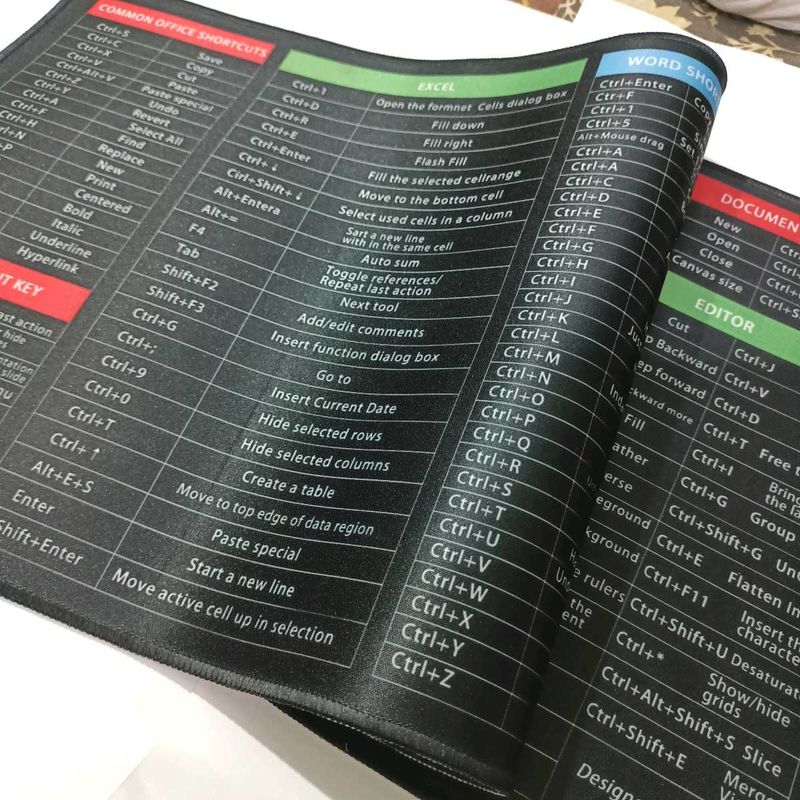 COMMON OFFICE SHORTCUTS
Ctrl+S Save
Ctrl+C Copy
Ctrl+X Cut
Ctrl+V Paste
Ctrl+Alt+V Paste special
Ctrl+Z Undo
Ctrl+Y Revert
Ctrl+A Select All
Ctrl+F Find
Ctrl+H Replace
New
Print
Centered
Bold
Italic
Underline
Hyperlink
KEY
last action
hide
slide
EXCEL
Ctrl+1 Open the formnet Cells dialog box
Ctrl+D Fill down
Ctrl+R Fill right
Ctrl+E Flash Fill
Ctrl+Enter Fill the selected cellrange
Ctrl+↓ Move to the bottom cell
Ctrl+Shift+↓ Select used cells in a column
Alt+Entera Sart a new line
with in the same cell
Alt+= Auto sum
F4 Toggle references/
Repeat last action
Tab Next tool
Shift+F2 Add/edit comments
Shift+F3 Insert function dialog box
Ctrl+G Go to
Ctrl+; Insert Current Date
Ctrl+9 Hide selected rows
Ctrl+0 Hide selected columns
Ctrl+T Create a table
Ctrl+↑ Move to top edge of data region
Alt+E+S Paste special
Enter Start a new line
Shift+Enter Move active cell up in selection
WORD SHOR
Ctrl+Enter
Ctr+F
Ctrl+1
Ctrl+5
Alt+Mouse drag
Ctrl+A
Ctrl+A
Ctrl+C
Ctrl+D
Ctrl+E
Ctrl+F
Ctrl+G
Ctrl+H
Ctrl+I
Ctrl+J
Ctrl+K
Ctrl+L
Ctrl+M
Ctrl+N
Ctrl+O
Ctrl+P
Ctrl+Q
Ctrl+R
Ctrl+S
Ctrl+T
Ctrl+U
Ctrl+V
Ctrl+W
Ctrl+X
Ctrl+Y
Ctrl+Z
DOCUMEN
New
Open
Close
Canvas size
EDITOR
Cut Ctrl+J
Backward Ctrl+V
forward Ctrl+D
ckward more Ctrl+T Free
Fill Ctrl+I Bring
the la
ather Ctrl+G Group
erse Ctrl+Shift+G
eground Ctrl+E Flatten
kground Ctrl+F11 Insert the
characte
rulers Ctrl+Shift+U Desaturat
the
ent Ctrl+* Show/hide
grids
Ctrl+Alt+Shift+S Slice
Ctrl+Shift+E Merg
Design